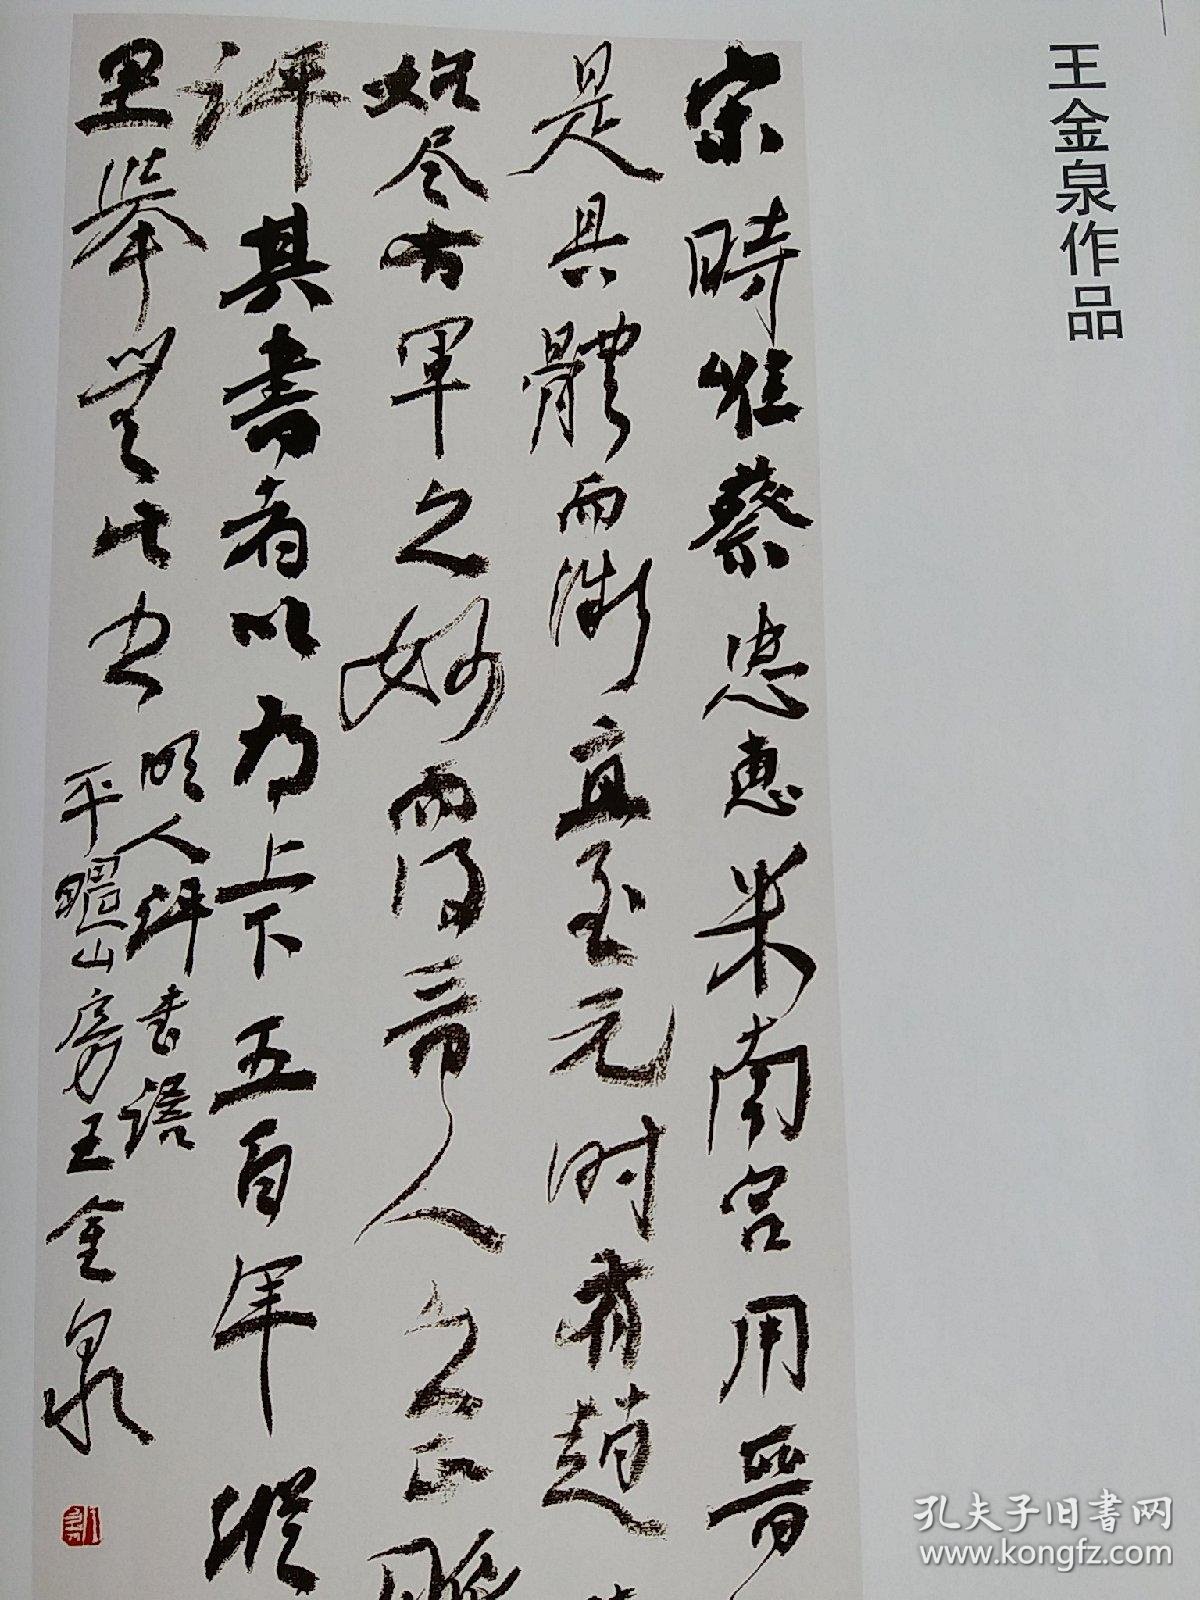 王金泉作品
宋時惟蔡忠惠米南宮用晋
是具體而微直至元时有趙
始尽右軍之妙而得晋人之正脈
评其書者以为上下五百年縱
里舉無此书
明人评书語
平山房王金泉
孔夫子旧书网
www.kongfz.com